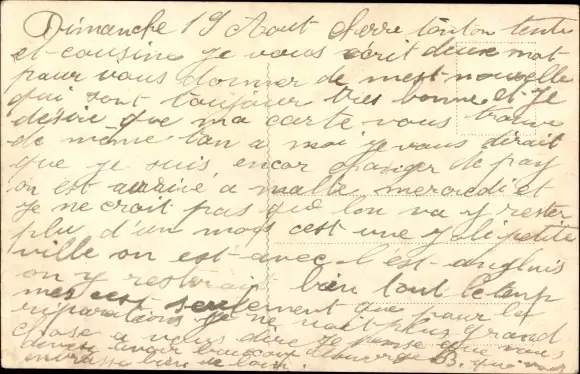 Dimanche 19 Aout Cherre tonton tente
et cousine je vous ecrit deux mot
pour vous donner de mest nouvelle
qui sont toujour tres bonne et je
desire que ma carte vous trouve
de même tan a moi je vous dirait
que je suis encor changer de pay
on est arrivé a malte mercredi et
je ne croit pas que lon va y rester
plu d'un mois cest une joli petite
ville on est avec l'est anglais
on y resterai bien tout le temp
mes cest seulement que pour la
reparation je ne voit plus grand
chose a vous dire je pense que vous
devez avoir beaucoup B. que vous
embrasse bien de loin.